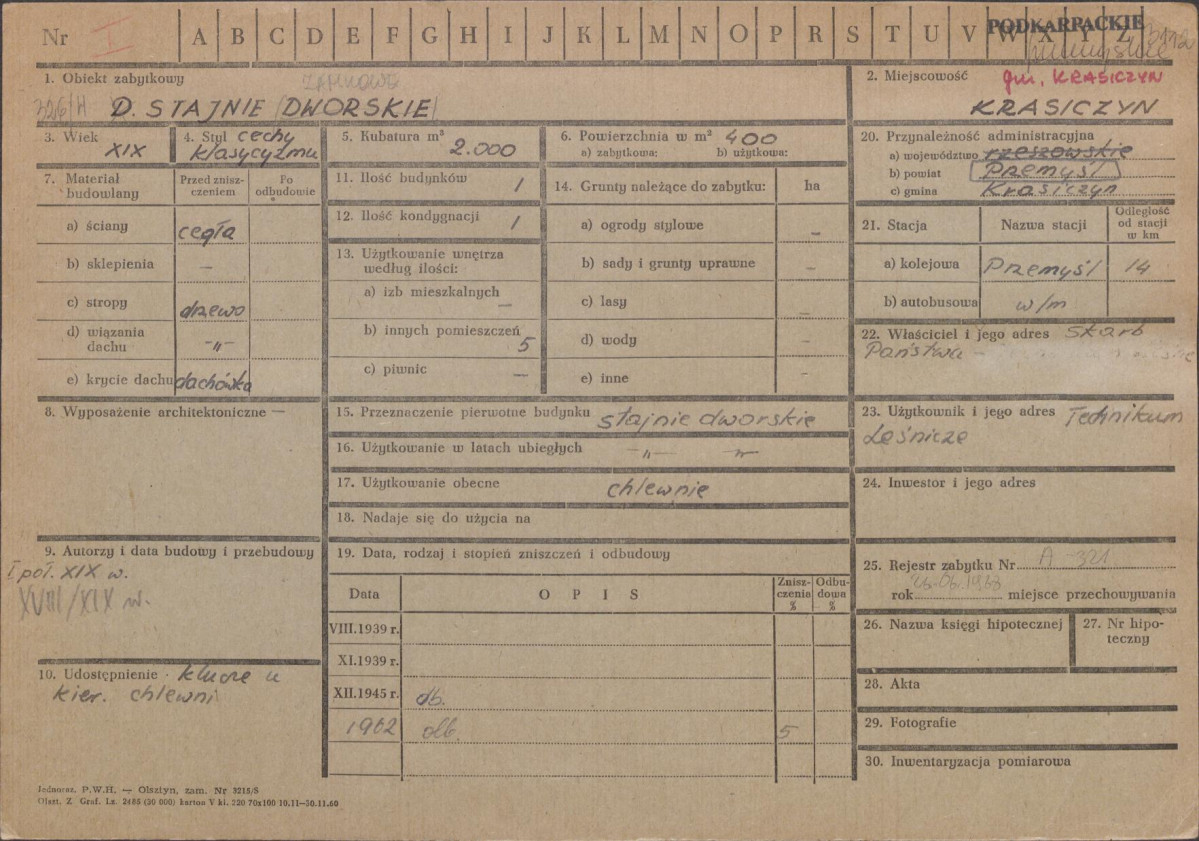 Nr I A B C D E F G H I J K L M N O P R S T U V W X Y Z
PODKARPACKIE
przemyskie
1. Obiekt zabytkowy
ZAMKOWE
D. STAJNIE (DWORSKIE)
2. Miejscowość gm. KRASICZYN
KRASICZYN
3. Wiek
XIX
4. Styl cechy
klasycyzmu
5. Kubatura m³
2.000
6. Powierzchnia w m² 400
a) zabytkowa: b) użytkowa:
20. Przynależność administracyjna
a) województwo rzeszowskie
b) powiat Przemyśl
c) gmina Krasiczyn
7. Materiał budowlany
Przed zniszczeniem
Po odbudowie
a) ściany cegła
b) sklepienia –
c) stropy drzewo
d) wiązania dachu -„-
e) krycie dachu dachówka
11. Ilość budynków 1
12. Ilość kondygnacji 1
13. Użytkowanie wnętrza
według ilości:
a) izb mieszkalnych –
b) innych pomieszczeń 5
c) piwnic –
14. Grunty należące do zabytku: ha
a) ogrody stylowe –
b) sady i grunty uprawne –
c) lasy –
d) wody –
e) inne –
21. Stacja Nazwa stacji Odległość od stacji w km
a) kolejowa Przemyśl 14
b) autobusowa w/m
22. Właściciel i jego adres Skarb
Państwa –
8. Wyposażenie architektoniczne –
15. Przeznaczenie pierwotne budynku stajnie dworskie
16. Użytkowanie w latach ubiegłych -„- -„-
17. Użytkowanie obecne chlewnie
18. Nadaje się do użycia na
23. Użytkownik i jego adres Technikum
Leśnicze
24. Inwestor i jego adres
9. Autorzy i data budowy i przebudowy
I poł. XIX w.
XVIII/XIX w.
10. Udostępnienie · klucze u
kier. chlewni
19. Data, rodzaj i stopień zniszczeń i odbudowy
Data OPIS Zniszczenia % Odbudowa %
VIII.1939 r.
XI.1939 r.
XII.1945 r. db.
1962 db. 5
25. Rejestr zabytku Nr A-321
rok 25.06.1968 miejsce przechowywania
26. Nazwa księgi hipotecznej
27. Nr hipoteczny
28. Akta
29. Fotografie
30. Inwentaryzacja pomiarowa
Jednoraz. P.W.H. — Olsztyn, zam. Nr 3218/S
Olszt. Z. Graf. Lz. 2486 (20 000) karton V kl. 220 70x100 10.11—30.11.60